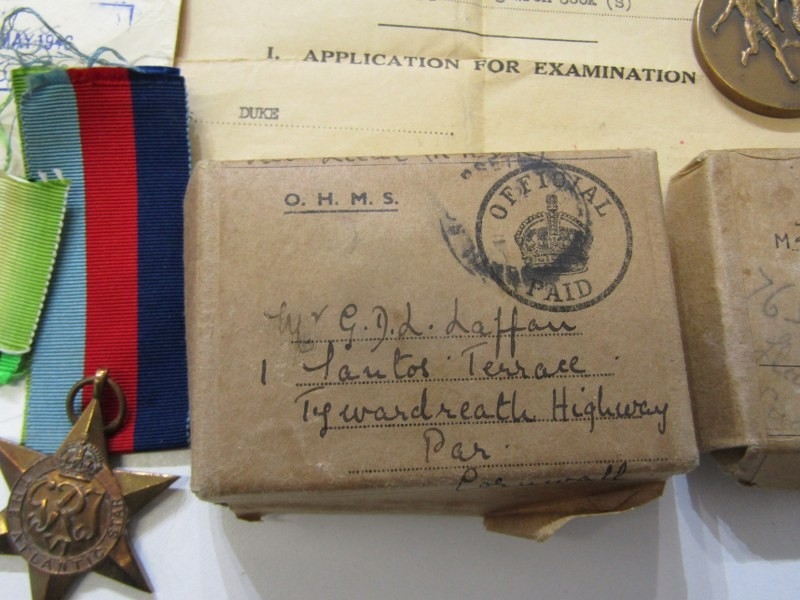 Cook (S)
I. APPLICATION FOR EXAMINATION
MAY 1946
DUKE
O. H. M. S.
OFFICIAL
PAID
Mr G.D.L. Laffan
1 Santos Terrace
Tywardreath Highway
Par.
Cornwall
THE ATLANTIC STAR